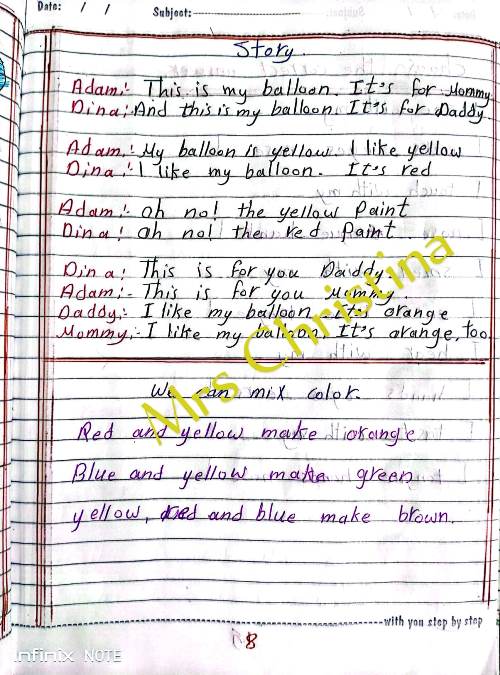 Date: / /
Subject:
Story.
Adam:- This is my balloon. It's for Mommy
Dina:- And this is my balloon. It's for Daddy
Adam:- My balloon is yellow. I like yellow
Dina:- I like my balloon. It's red
Adam:- oh no! the yellow Paint
Dina: oh no! the red Paint
Dina: This is for you Daddy.
Adam:- This is for you Mommy.
Daddy:- I like my balloon. It's orange
Mommy:- I like my balloon. It's orange, too
We can mix color.
Red and yellow make orange
Blue and yellow make green
yellow, red and blue make brown.
with you step by step
8
Infinix NOTE
Mrs Christina